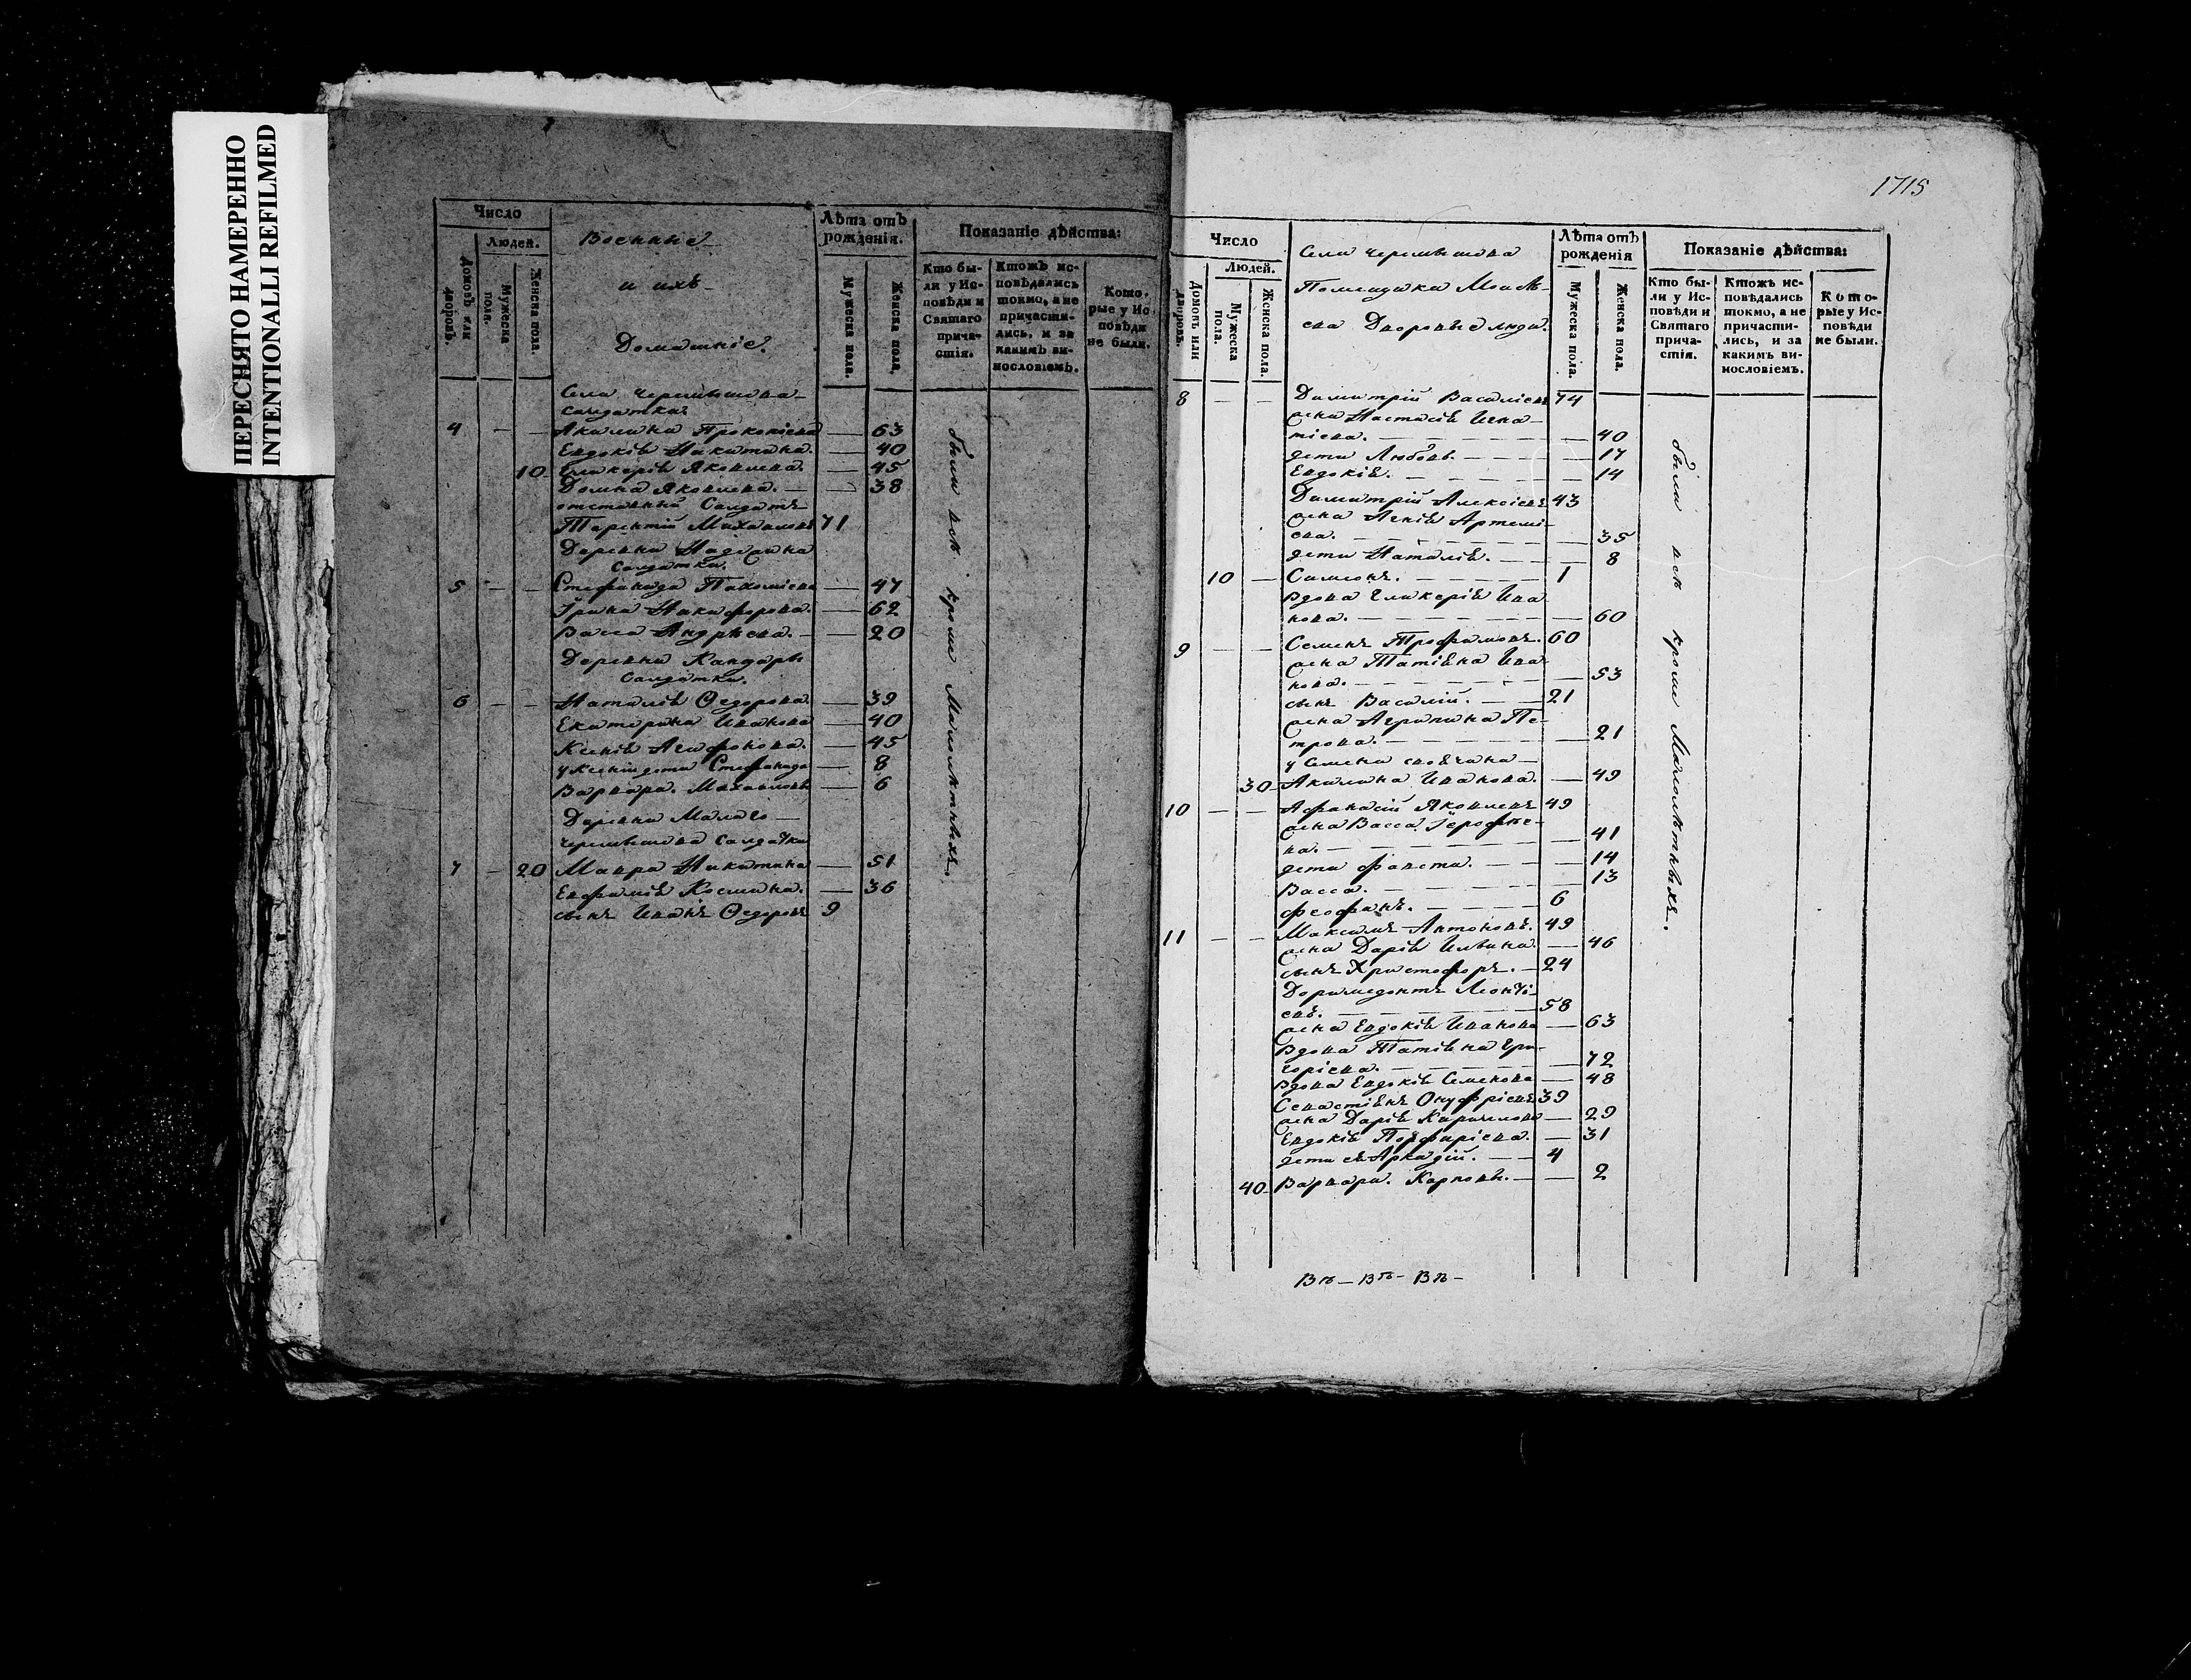 ПЕРЕСНЯТО НАМЕРЕННО
INTENTIONALLI REFILMED
Число
Людей.
Домовъ или дворовъ.
Мужеска пола.
Женска пола.
Военные
и ихъ
Домашніе.
Лѣта отъ рожденія.
Мужеска пола.
Женска пола.
Показаніе дѣйства:
Кто бы-
ли у Ис-
повѣди и
Святаго
прича-
стія.
Ктожъ ис-
повѣдались
токмо, а не
причасти-
лись, и за
какимъ ви-
нословіемъ.
Кото-
рые у Ис-
повѣди
не были.
Села
солдатки
4 — — Акилина Прокопіева — 63
Евдокія Никитина — 40
10 Гликерія Яковлева. — 45
Домна Яковлева. — 38
отставный Солдатъ
Терентій Михайловъ 71
Деревни
Солдатки.
5 — — Стефанида Пахоміева — 47
Ірина Никифорова. — 62
Васса Андрѣева. — 20
Деревни Кандары
Солдатки.
6 — — Наталія Ѳедорова. — 39
Екатерина Иванова — 40
Ксенія Агафонова. — 45
у Ксеніи дети Стефанида — 8
Варвара. Михайловы — 6
Деревни Малаго
солдатки
7 — 20 Мавра Никитина — 51
Евфимія Космина. — 36
сынъ Иванъ Ѳедоровъ 9
были всѣ кроме Малолѣтныхъ.
1715
Число
Людей.
Домовъ или дворовъ.
Мужеска пола.
Женска пола.
Села
Помещика Моисѣ-
ева Дворовые люди.
Лѣта отъ рожденія
Мужеска пола.
Женска пола.
Показаніе дѣйства:
Кто бы-
ли у Ис-
повѣди и
Святаго
прича-
стія.
Ктожъ ис-
повѣдались
токмо, а не
причасти-
лись, и за
какимъ ви-
нословіемъ.
Кото-
рые у Ис-
повѣди
не были.
8 — — Димитрій Василіевъ 74
жена Настасія Игна-
тіева. — 40
дети Любовь. — 17
Евдокія. — 14
Димитрій Алексіевъ 43
жена Артеміе-
ва. — 35
дети Наталія. — 8
10 — Симеонъ. — 1
Вдова Гликерія Ива-
нова. — 60
9 — — Семенъ Трофимовъ. 60
жена Татіяна Ива-
нова. — 53
сынъ Василій. — 21
жена Агрипина Пе-
трова. — 21
у Семена своячина —
30 Акилина Иванова. — 49
10 — — Афанасій Яковлевъ 49
жена Васса Іерофѣе-
ва. — 41
дети Фавста. — 14
Васса. — 13
Феофанъ. — 6
11 — — Максимъ Антоновъ. 49
жена Дарія Ильина. — 46
сынъ Христофоръ. — 24
Доримедонтъ Леонті-
евъ. — 58
жена Евдокія Иванова — 63
Вдова Татіяна Гри-
горіева. — 72
Вдова Евдокія Семенова — 48
Севастіянъ Онуфріевъ 39
жена Дарія Кирилова — 29
Евдокія Порфиріева. — 31
дети ея Аркадій. — 4
40 Варвара. Карповы. — 2
были всѣ кроме Малолѣтныхъ.